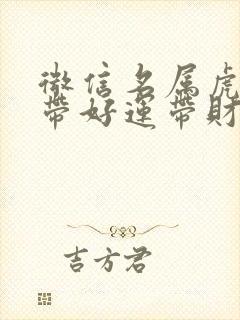 微信名属虎
带好运带财
吉方君